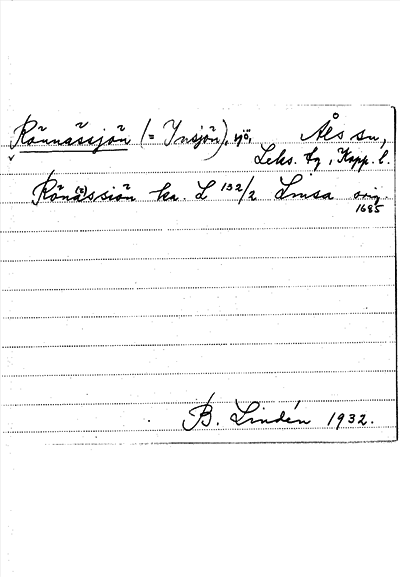 Rönnässjön (= Ynsjön), sjö. Åls sn,
Leks. tg, Kopp. l.
Rönä(?)ssiön ka. L 132/2 Lmsa orig.
1685
B. Lindén 1932.